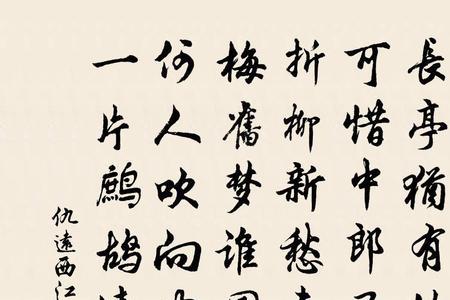 長亭猶有
可惜中郎
折柳新愁
梅舊夢誰
何人吹向
一片鷓鴣
仇遠西江